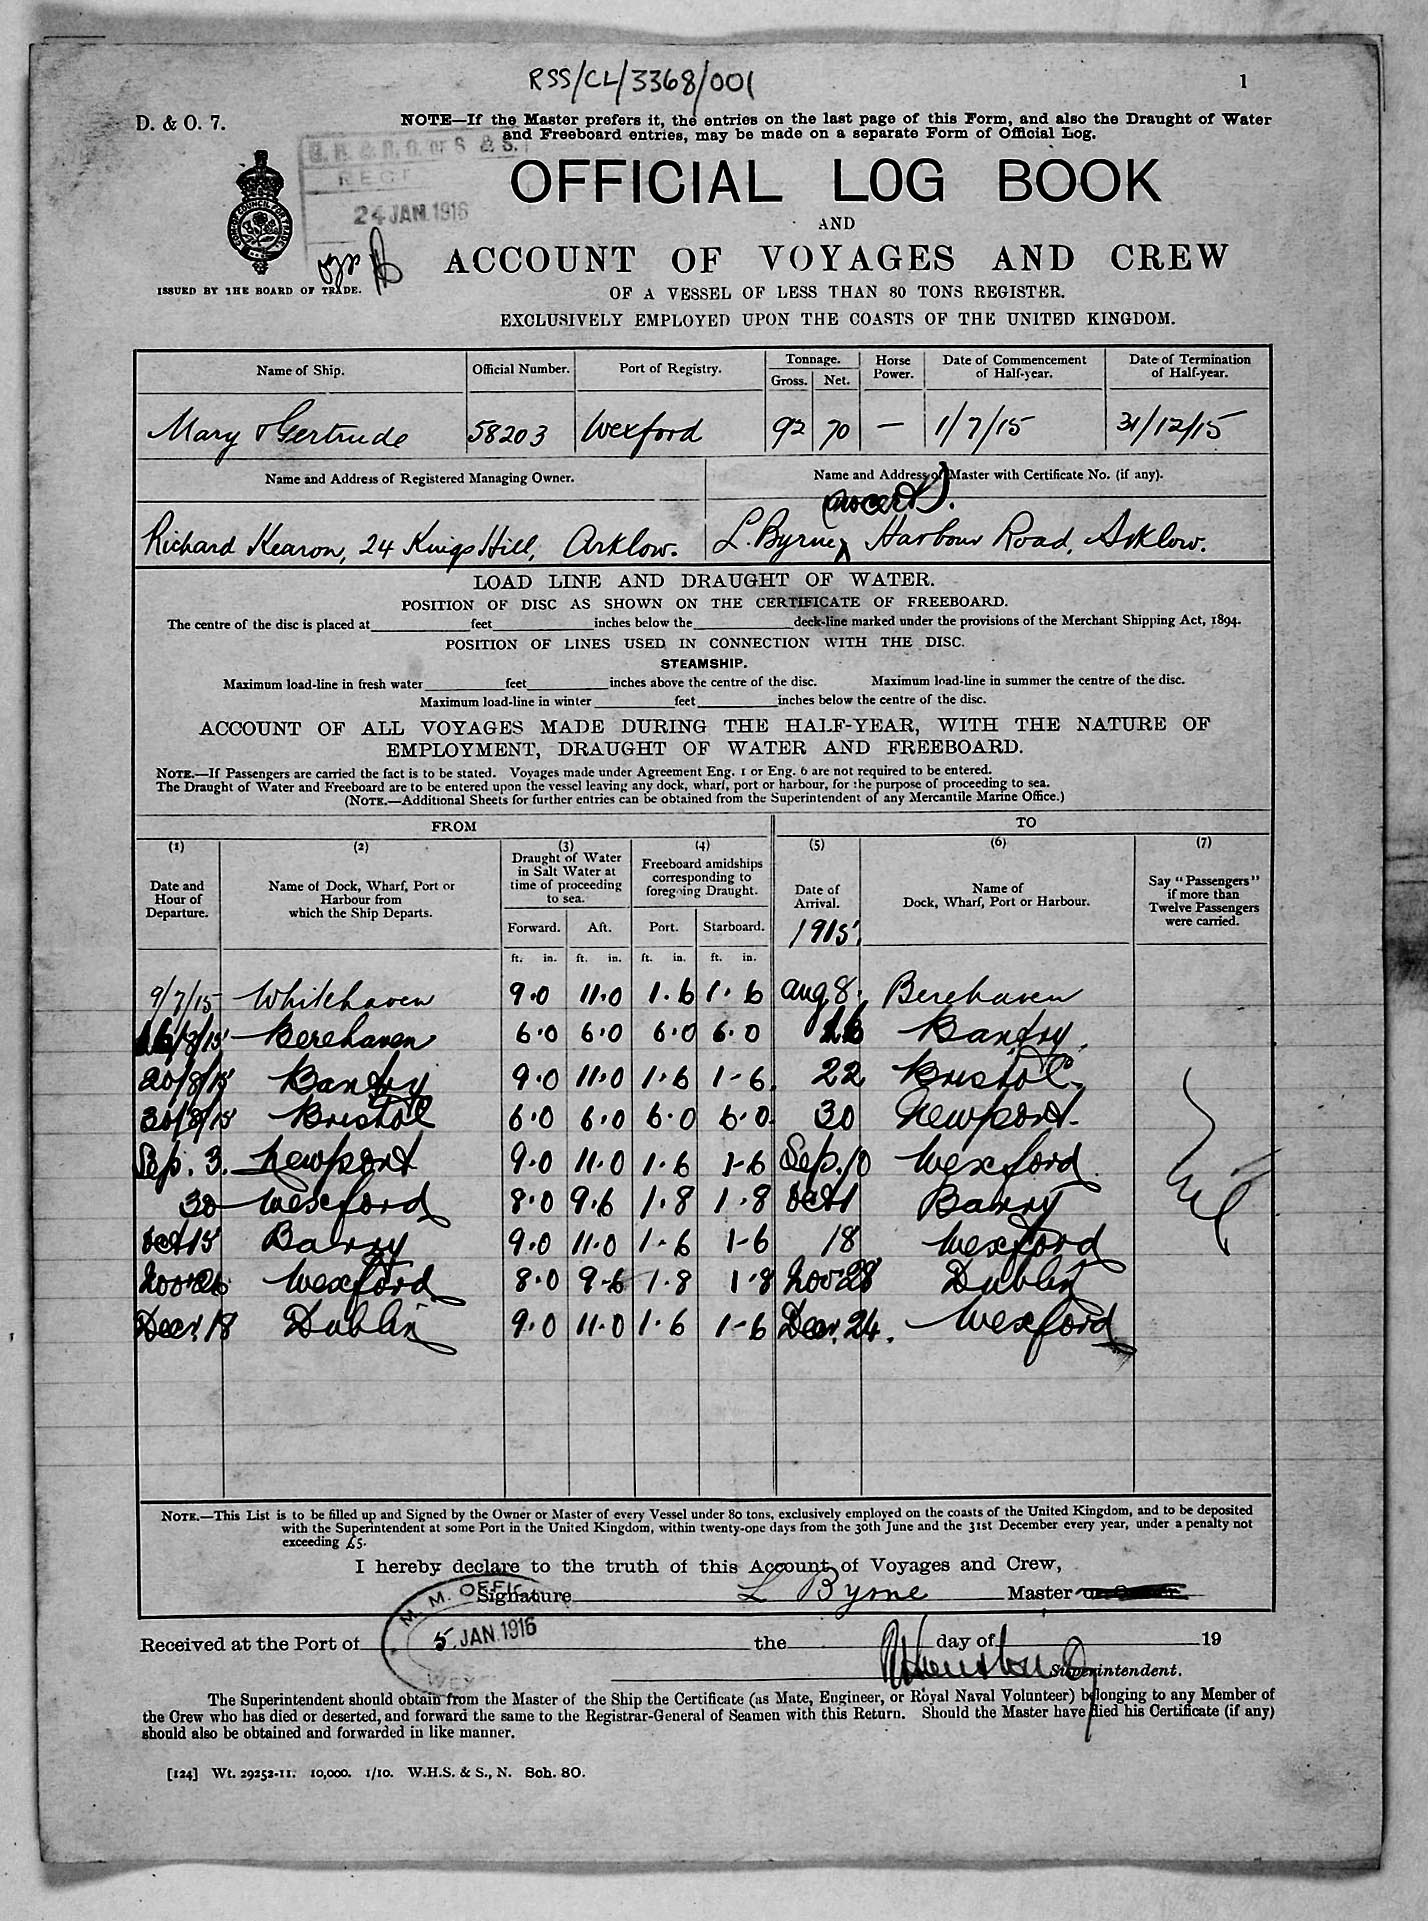 RSS/CL/3368/001
1
D. & O. 7.
NOTE—If the Master prefers it, the entries on the last page of this Form, and also the Draught of Water
and Freeboard entries, may be made on a separate Form of Official Log.
24 JAN. 1916
OFFICIAL LOG BOOK
AND
ACCOUNT OF VOYAGES AND CREW
ISSUED BY THE BOARD OF TRADE.
OF A VESSEL OF LESS THAN 80 TONS REGISTER.
EXCLUSIVELY EMPLOYED UPON THE COASTS OF THE UNITED KINGDOM.
Name of Ship. Official Number. Port of Registry. Tonnage. Gross. Net. Horse Power. Date of Commencement of Half-year. Date of Termination of Half-year.
Mary & Gertrude 58203 Wexford 92 70 — 1/7/15 31/12/15
Name and Address of Registered Managing Owner. Name and Address of Master with Certificate No. (if any).
(no cert).
Richard Kearon, 24 Kings Hill, Arklow. L. Byrne, Harbour Road, Arklow.
LOAD LINE AND DRAUGHT OF WATER.
POSITION OF DISC AS SHOWN ON THE CERTIFICATE OF FREEBOARD.
The centre of the disc is placed at feet inches below the deck-line marked under the provisions of the Merchant Shipping Act, 1894.
POSITION OF LINES USED IN CONNECTION WITH THE DISC.
STEAMSHIP.
Maximum load-line in fresh water feet inches above the centre of the disc. Maximum load-line in summer the centre of the disc.
Maximum load-line in winter feet inches below the centre of the disc.
ACCOUNT OF ALL VOYAGES MADE DURING THE HALF-YEAR, WITH THE NATURE OF
EMPLOYMENT, DRAUGHT OF WATER AND FREEBOARD.
NOTE.—If Passengers are carried the fact is to be stated. Voyages made under Agreement Eng. 1 or Eng. 6 are not required to be entered.
The Draught of Water and Freeboard are to be entered upon the vessel leaving any dock, wharf, port or harbour, for the purpose of proceeding to sea.
(NOTE.—Additional Sheets for further entries can be obtained from the Superintendent of any Mercantile Marine Office.)
FROM TO
(1) (2) (3) (4) (5) (6) (7)
Date and Hour of Departure. Name of Dock, Wharf, Port or Harbour from which the Ship Departs. Draught of Water in Salt Water at time of proceeding to sea. Freeboard amidships corresponding to foregoing Draught. Date of Arrival. Name of Dock, Wharf, Port or Harbour. Say "Passengers" if more than Twelve Passengers were carried.
Forward. Aft. Port. Starboard. 1915
ft. in. ft. in. ft. in. ft. in.
9/7/15 Whitehaven 9.0 11.0 1.6 1.6 Aug 8 Berehaven
16/8/15 Berehaven 6.0 6.0 6.0 6.0 16 Bantry.
20/8/15 Bantry 9.0 11.0 1.6 1-6 22 Bristol
30/8/15 Bristol 6.0 6.0 6.0 6.0 30 Newport.
Sep. 3. Newport 9.0 11.0 1.6 1-6 Sep. 10 Wexford
Nil
30 Wexford 8.0 9.6 1.8 1.8 Oct 1 Barry
Oct 15 Barry 9.0 11.0 1-6 1-6 18 Wexford
Nov 26 Wexford 8.0 9-6 1.8 1.8 Nov 28 Dublin
Decr. 18 Dublin 9.0 11.0 1.6 1-6 Decr. 24. Wexford
NOTE.—This List is to be filled up and Signed by the Owner or Master of every Vessel under 80 tons, exclusively employed on the coasts of the United Kingdom, and to be deposited
with the Superintendent at some Port in the United Kingdom, within twenty-one days from the 30th June and the 31st December every year, under a penalty not
exceeding £5.
I hereby declare to the truth of this Account of Voyages and Crew,
Signature L Byrne Master
M. M. OFFICE
5 JAN. 1916
WEX
Received at the Port of the day of 19
Superintendent.
The Superintendent should obtain from the Master of the Ship the Certificate (as Mate, Engineer, or Royal Naval Volunteer) belonging to any Member of
the Crew who has died or deserted, and forward the same to the Registrar-General of Seamen with this Return. Should the Master have died his Certificate (if any)
should also be obtained and forwarded in like manner.
[124] Wt. 29252-11. 10,000. 1/10. W.H.S. & S., N. Sch. 80.